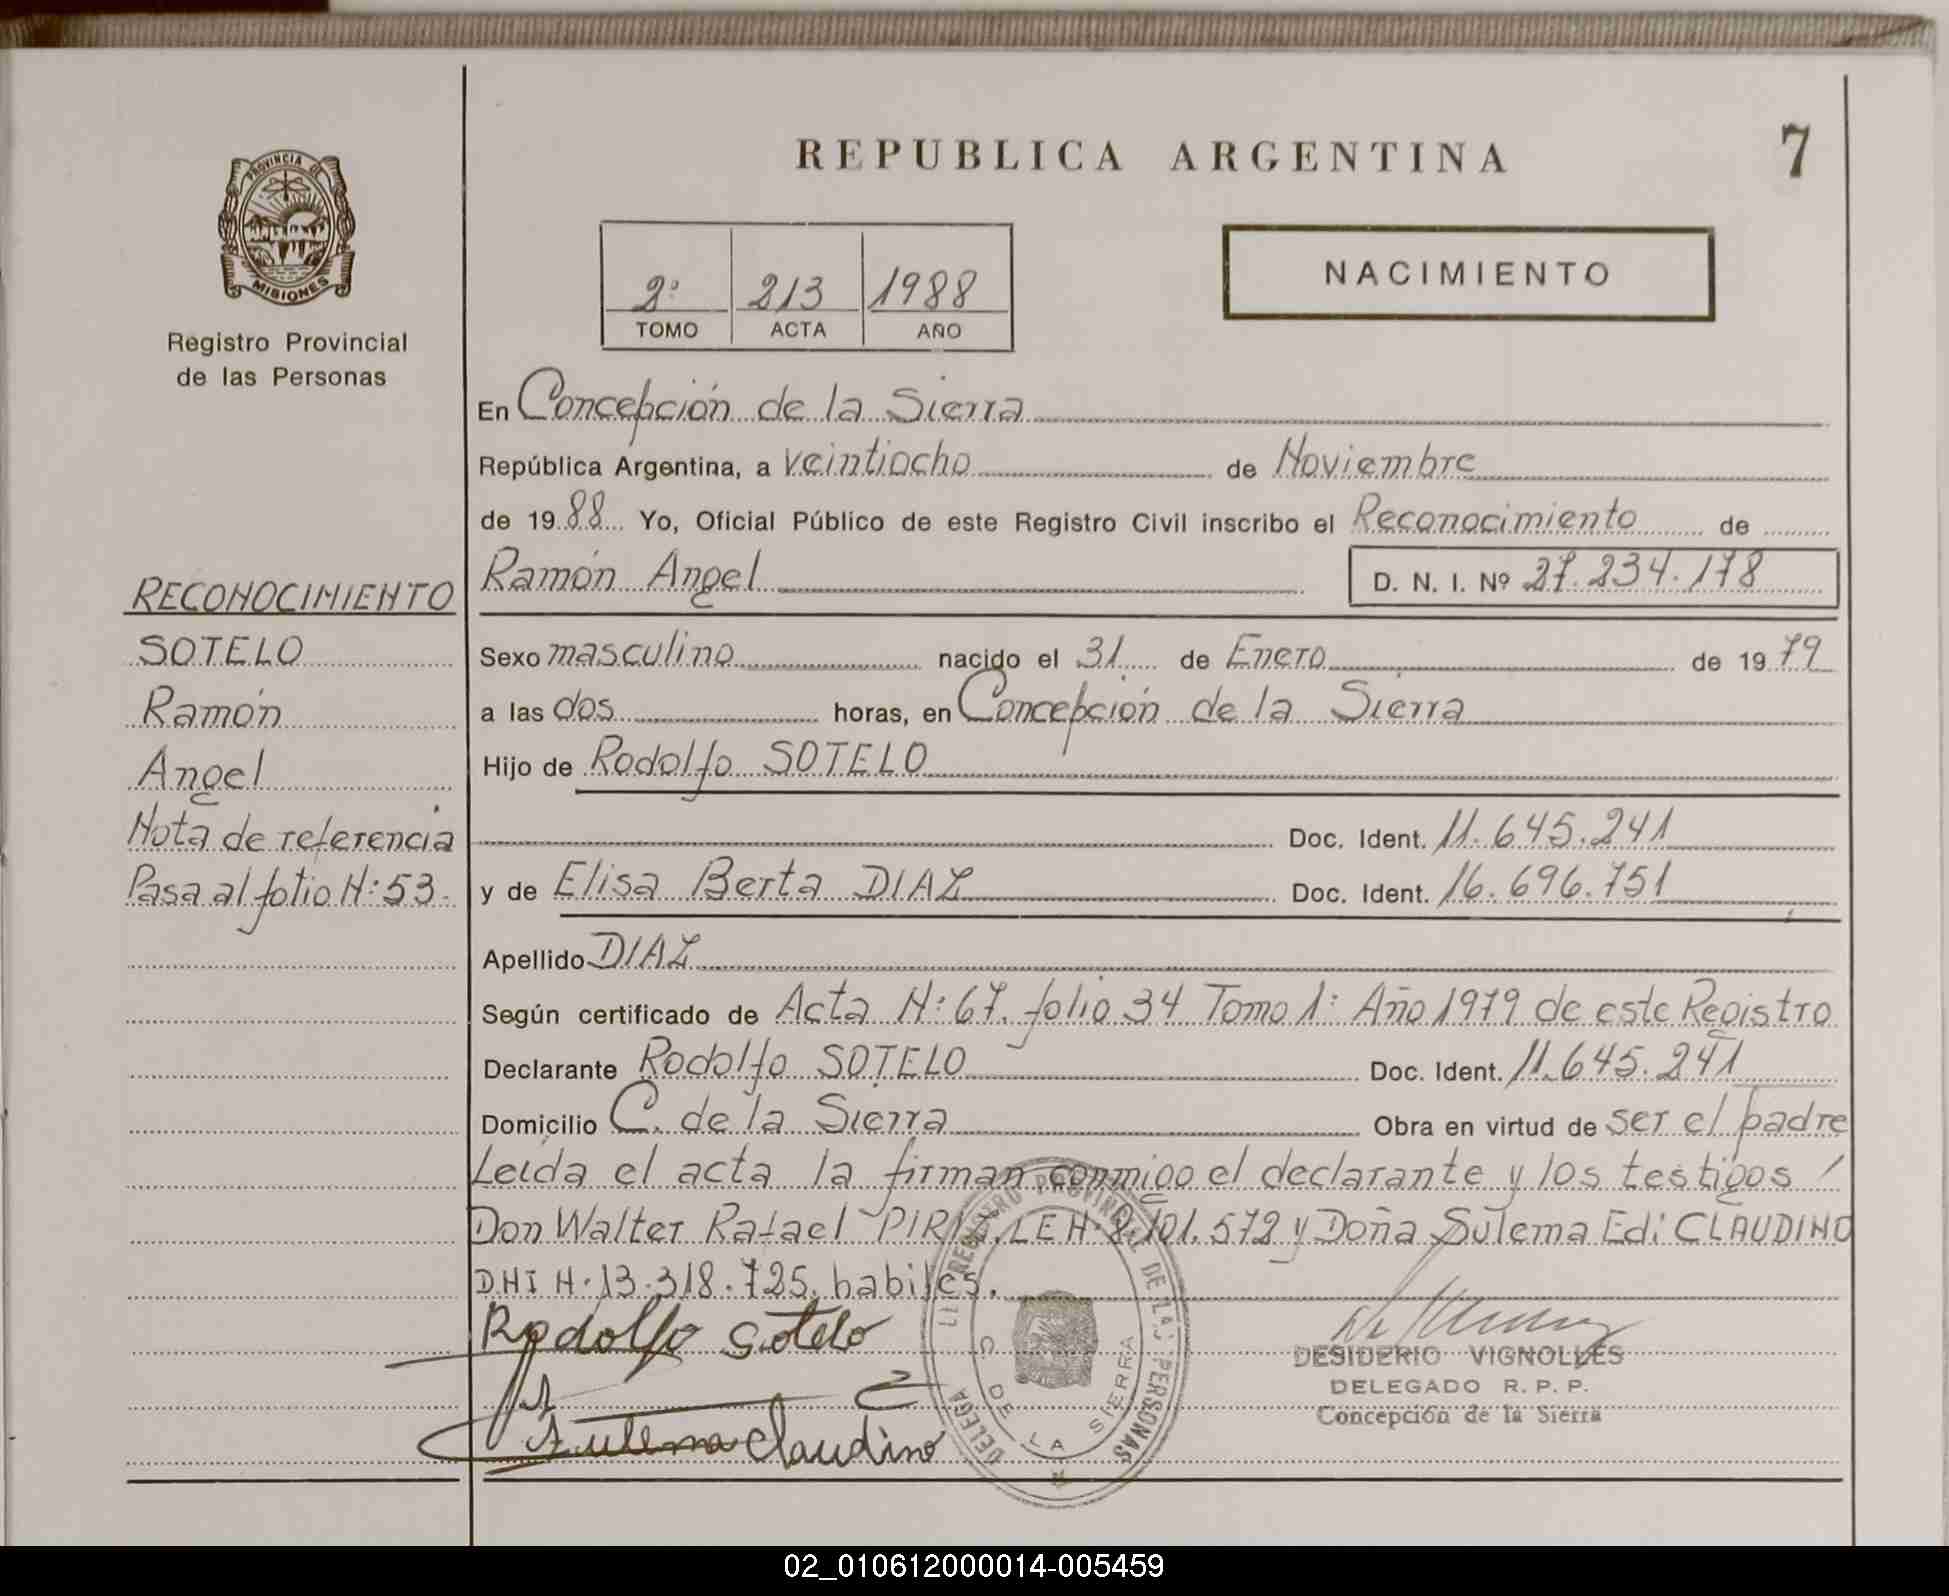 REPUBLICA ARGENTINA
7
PROVINCIA DE
MISIONES
Registro Provincial
de las Personas
2º 213 1988
TOMO ACTA AÑO
NACIMIENTO
En Concepción de la Sierra
República Argentina, a veintiocho de Noviembre
de 1988 Yo, Oficial Público de este Registro Civil inscribo el Reconocimiento de
Ramón Angel D. N. I. Nº 27.234.178
RECONOCIMIENTO
SOTELO
Ramón
Angel
Nota de referencia
Pasa al folio N: 53.
Sexo masculino nacido el 31 de Enero de 1979
a las dos horas, en Concepción de la Sierra
Hijo de Rodolfo SOTELO
Doc. Ident. 11.645.241
y de Elisa Berta DIAZ Doc. Ident. 16.696.751
Apellido DIAZ
Según certificado de Acta N: 67. folio 34 Tomo 1: Año 1979 de este Registro
Declarante Rodolfo SOTELO Doc. Ident. 11.645.241
Domicilio C. de la Sierra Obra en virtud de ser el padre
Leída el acta la firman conmigo el declarante y los testigos
Don Walter Rafael LE N: y Doña Sulema Edi CLAUDINO
DNI N. 13.318.725. habiles.
Rodolfo Sotelo
Zulema Claudino
REGISTRO PROVINCIAL DE LAS PERSONAS
C. DE LA SIERRA
DESIDERIO VIGNOLLES
DELEGADO R. P. P.
Concepción de la Sierra
02_010612000014-005459